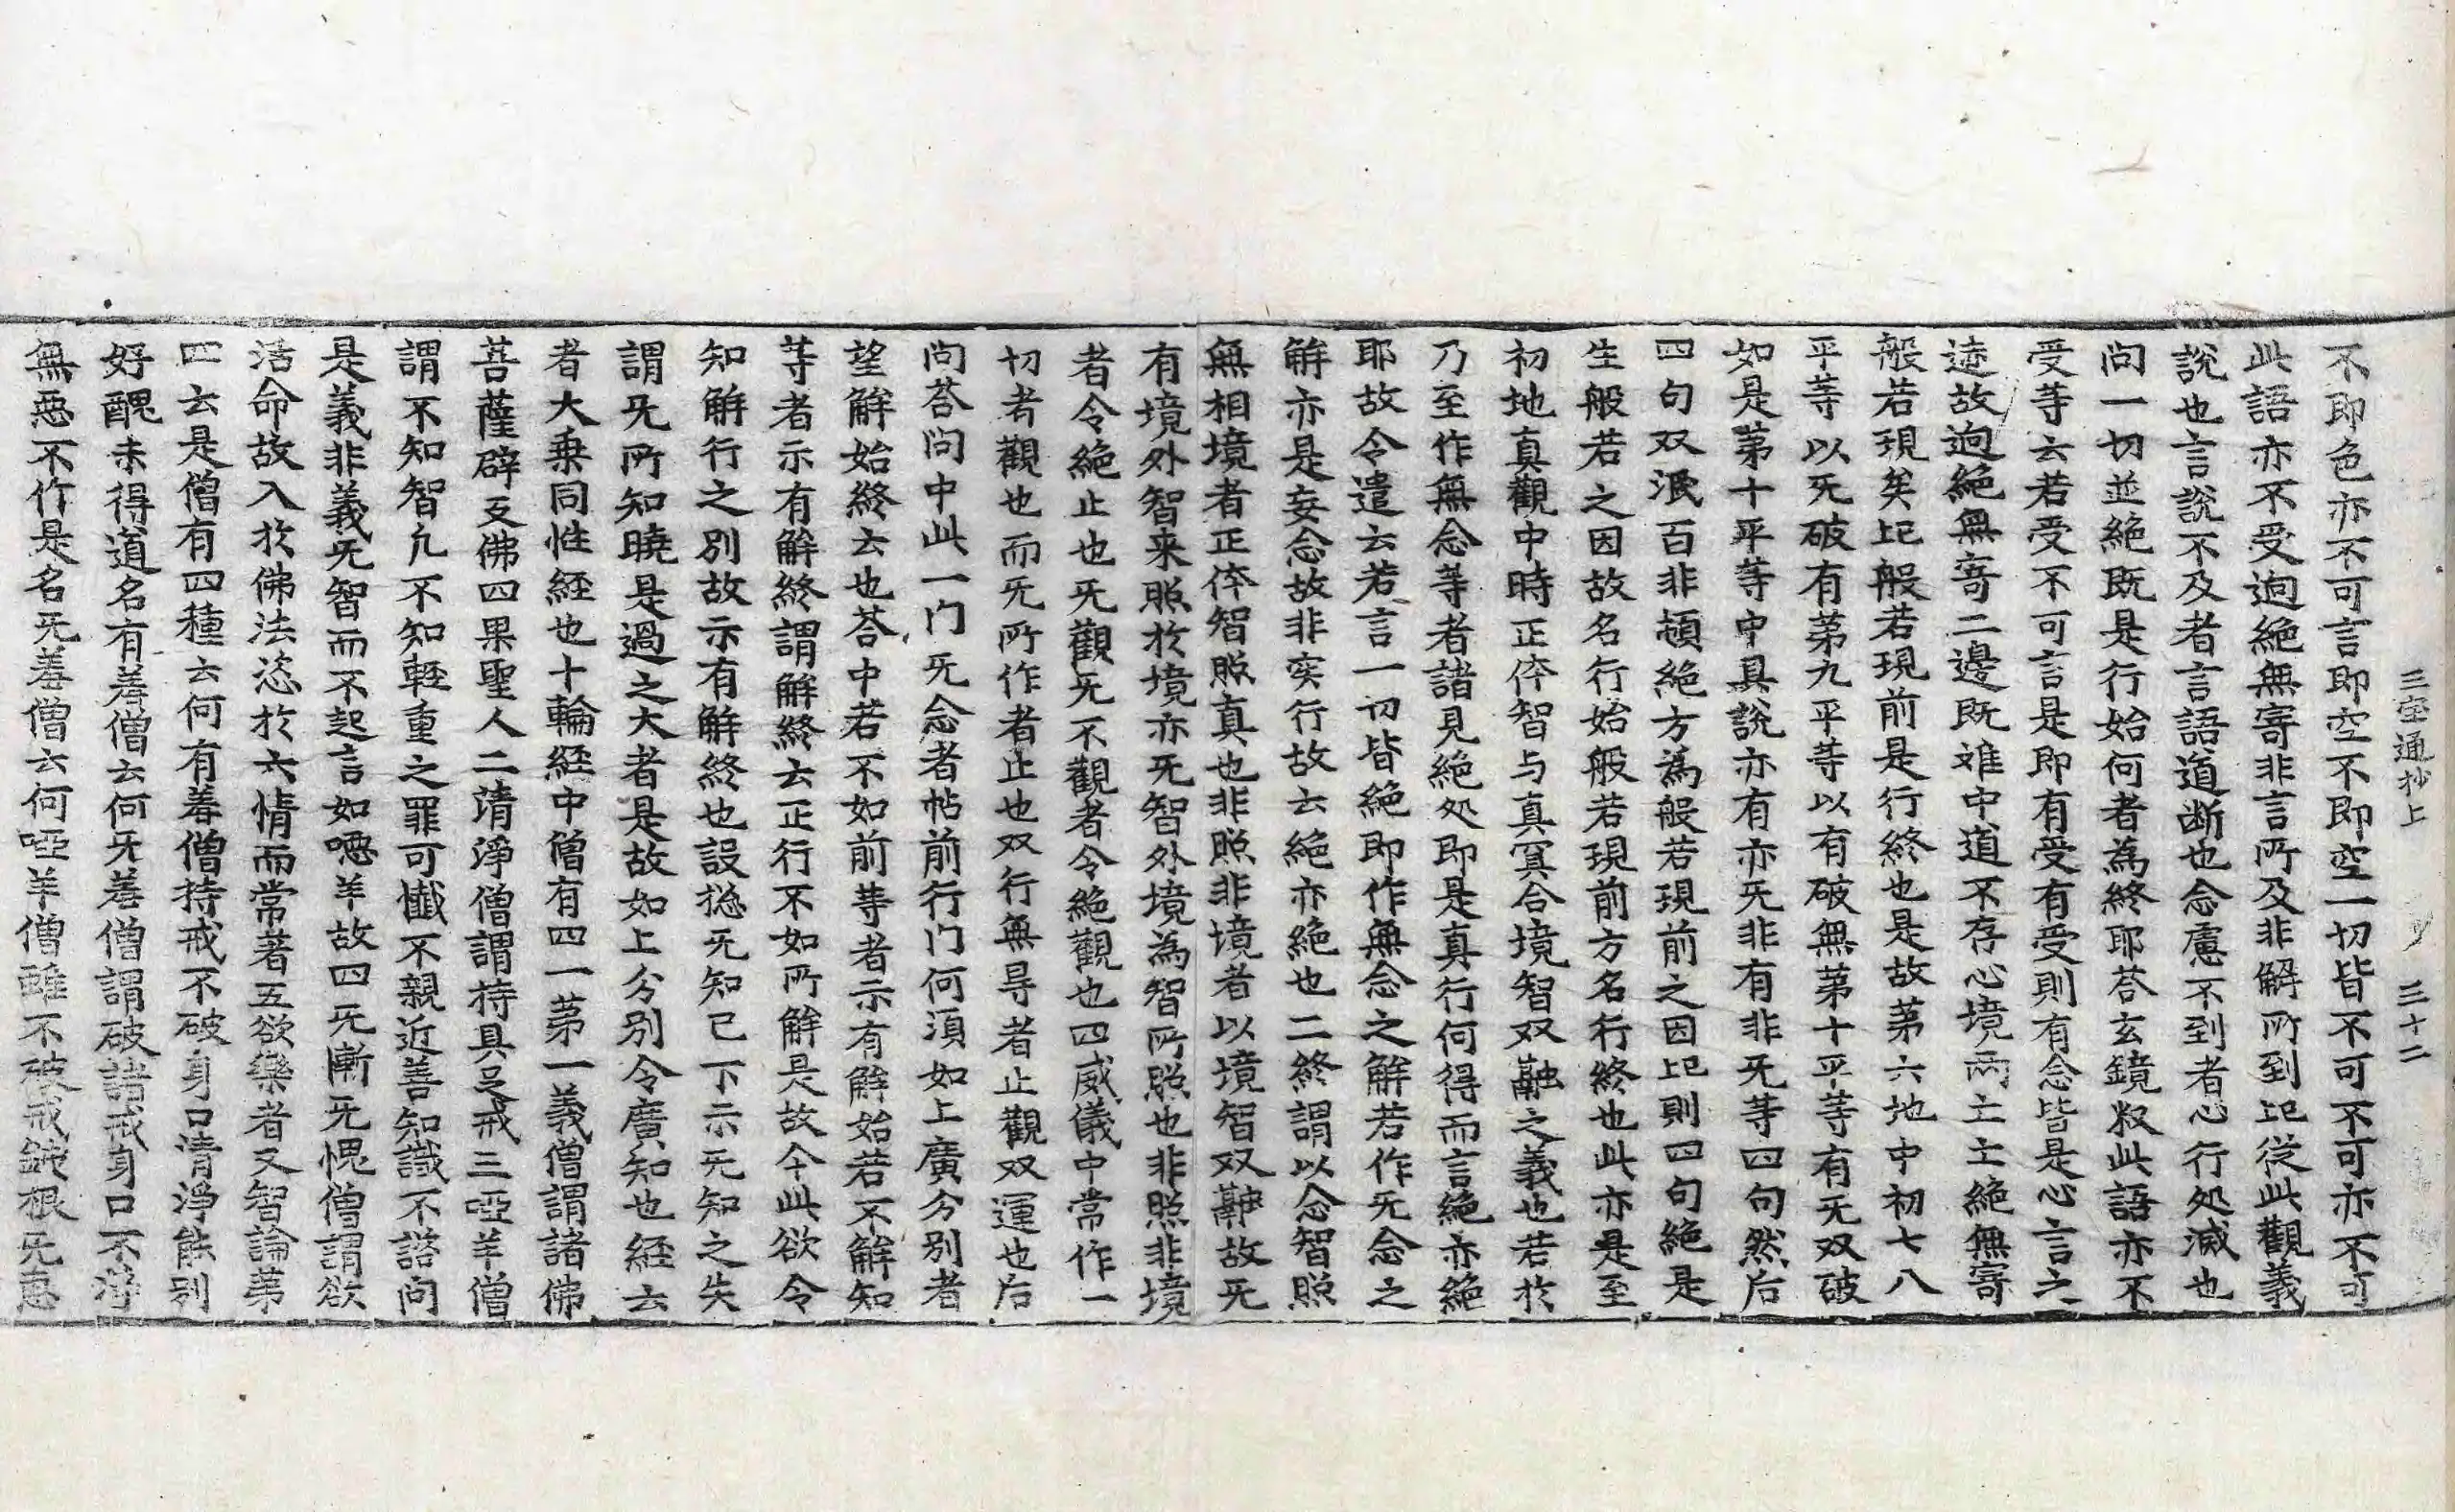 三宝通抄上　三十二
不即色亦不可言即空不即空一切皆不可不可亦不可
此語亦不受逈絶無寄非言所及非解所到是従此觀義
說也言說不及者言語道断也念慮不到者心行処滅也
问一切並絶既是行始何者為終耶荅玄鏡叙此語亦不
受等云若受不可言是即有受有受則有念皆是心言之
迹故逈絶無寄二邊既难中道不存心境兩亡亡絶無寄
般若現矣此般若現前是行終也是故苐六地中初七八
平等以旡破有苐九平等以有破無苐十平等有旡双破
如是苐十平等中具說亦有亦旡非有非旡等四句然后
四句双泯百非頓絶方為般若現前之因此則四句絶是
生般若之因故名行始般若現前方名行終也此亦是至
初地真觀中時正体智与真冥合境智双融之義也若於
乃至作無念等者諸見絶処即是真行何得而言絶亦絶
耶故令遣云若言一切皆絶即作無念之解若作旡念之
解亦是妄念故非实行故云絶亦絶也二終謂以念智照
無相境者正体智照真也非照非境者以境智双融故旡
有境外智来照於境亦旡智外境為智所照也非照非境
者令絶止也旡觀旡不觀者令絶觀也四威儀中常作一
切者觀也而旡所作者止也双行無㝵者止觀双運也后
问荅问中此一门旡念者帖前行门何湏如上廣分別者
望解始終云也荅中若不如前等者示有解始若不解知
等者示有解終謂解終云正行不如所解是故今此欲令
知解行之別故示有解終也設捴旡知已下示旡知之失
謂旡所知曉是過之大者是故如上分別令廣知也経云
者大乗同性経也十輪経中僧有四一苐一義僧謂諸佛
菩薩辟支佛四果聖人二清淨僧謂持具足戒三啞羊僧
謂不知智凢不知軽重之罪可懺不親近善知識不諮问
是義非義旡智而不起言如啞羊故四旡慚旡愧僧謂欲
活命故入於佛法恣於六情而常著五欲樂者又智論苐
四云是僧有四種云何有羞僧持戒不破身口清淨能別
好醜未得道名有羞僧云何旡羞僧謂破諸戒身口不淨
無惡不作是名旡羞僧云何啞羊僧雖不破戒鈍根旡惠